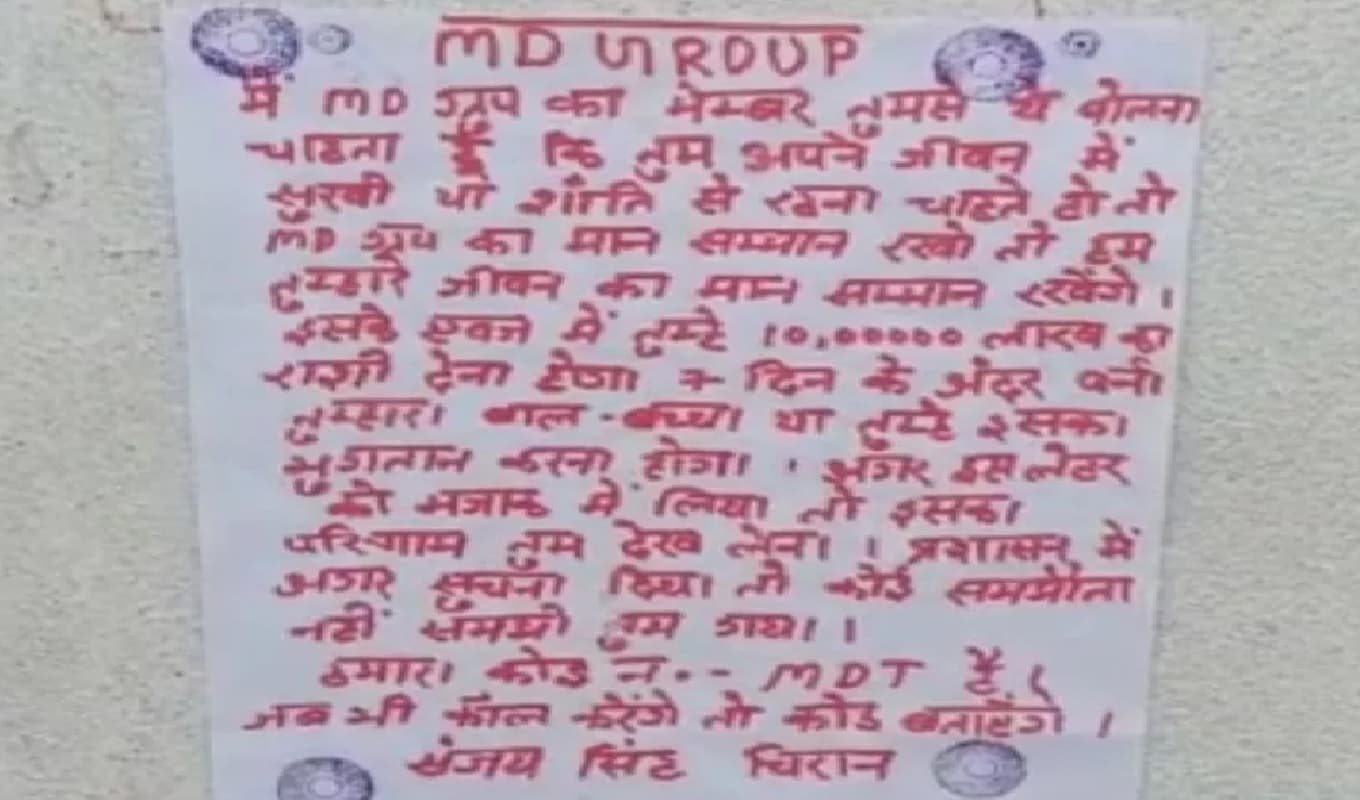 MD GROUP
में MD ग्रुप का मेम्बर तुमसे ये बोलना
चाहता हूँ कि तुम अपने जीवन में
सुखी यो शांति से रहना चाहते हो तो
MD ग्रुप का मान सम्मान रखो तो हम
तुम्हारे जीवन का मान सम्मान रखेंगे ।
इसके एवज में तुम्हे 10,00000 लाख का
राशी देना होगा 7 दिन के अंदर वर्ना
तुम्हारा बाल-बच्चा या तुम्हे इसका
भुगतान करना होगा । अगर इस लेटर
को मजाक में लिया तो इसका
परिणाम तुम देख लेना । प्रशासन में
अगर सुचना दिया तो कोई समझौता
नहीं समझो तुम गया ।
हमारा कोड न.- MDT है ।
जब भी कॉल करेंगे तो कोड बताएंगे ।
संजय सिंह चिरान